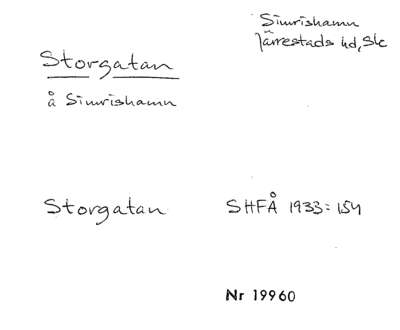 Simrishamn
Järrestads hd, Sk
Storgatan
å Simrishamn
Storgatan
SHFÅ 1933: 154
Nr 19960